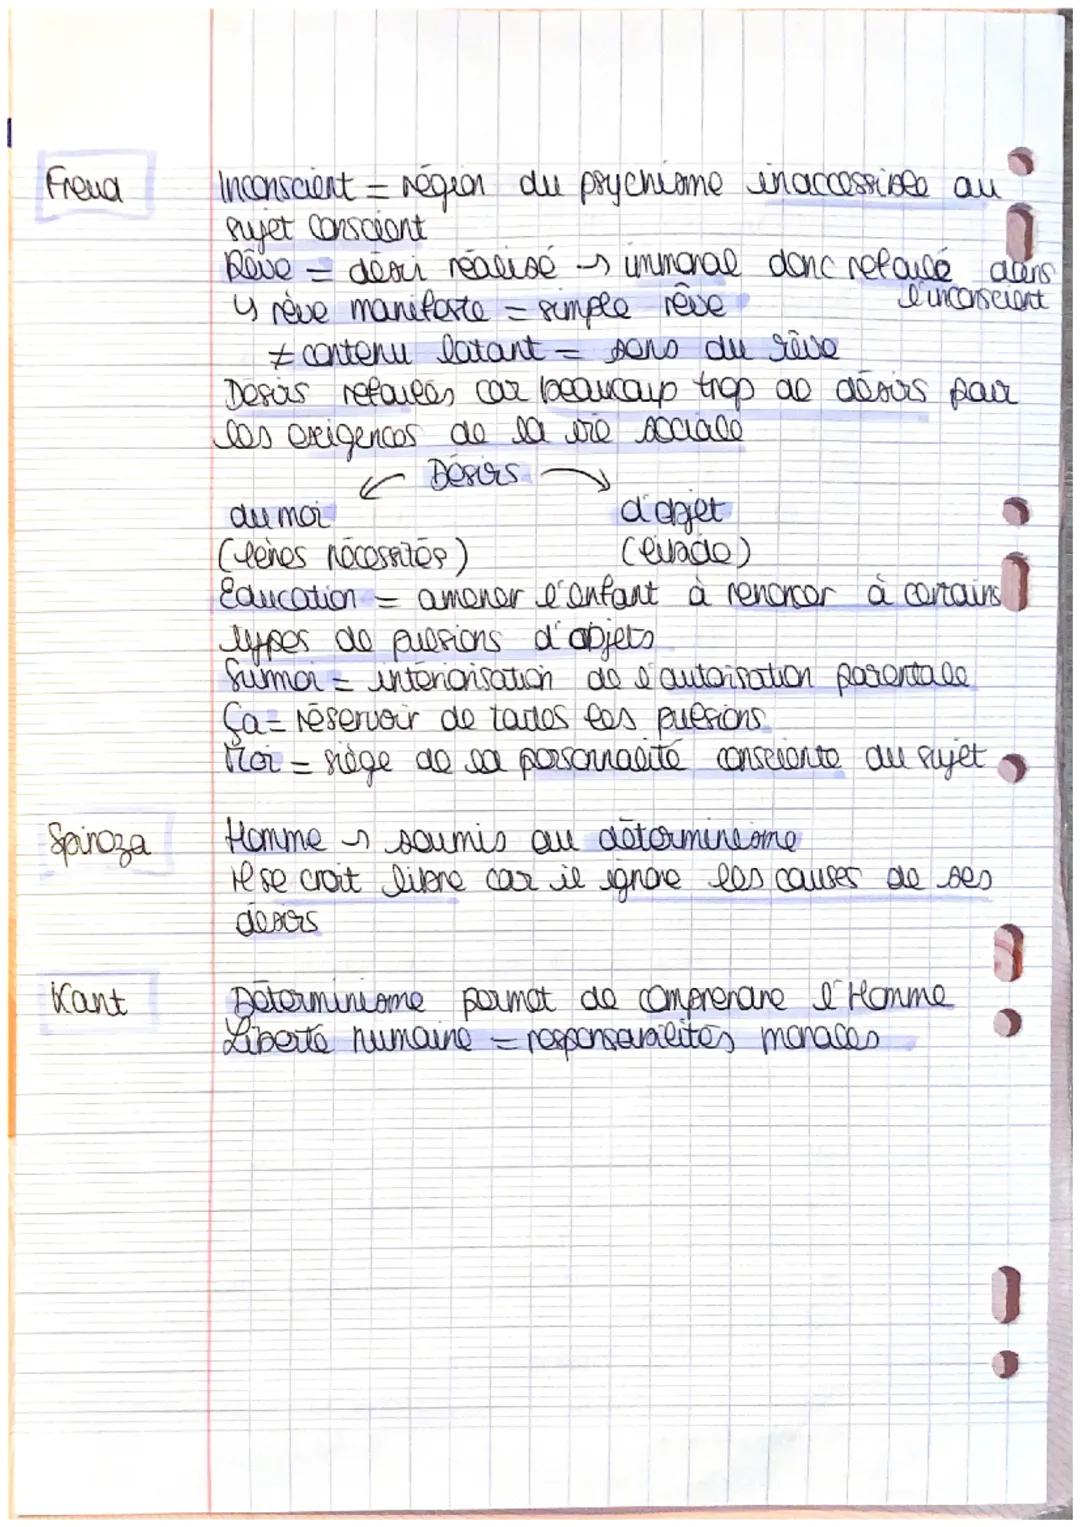 Freud
Inconscient = région du psychisme inaccessible au
sujet conscient
Rêve = désir réalisé → immoral donc refoulé dans
l'inconscient
↳ rêve manifeste = simple rêve
≠ contenu latent = sens du rêve
Désirs refoulés car beaucoup trop de désirs pour
les exigences de la vie sociale
← Désirs →
du moi
d'objet
(liées nécessités)
(libido)
Education = amener l'enfant à renoncer à certains
types de pulsions d'objets
Surmoi = intériorisation de l'autorisation parentale
Ça = réservoir de toutes les pulsions
Moi = siège de la personnalité consciente du sujet
Spinoza
Homme → soumis au déterminisme
Il se croit libre car il ignore les causes de ses
désirs
Kant
Déterminisme permet de comprendre l'Homme
Liberté humaine = responsabilités morales